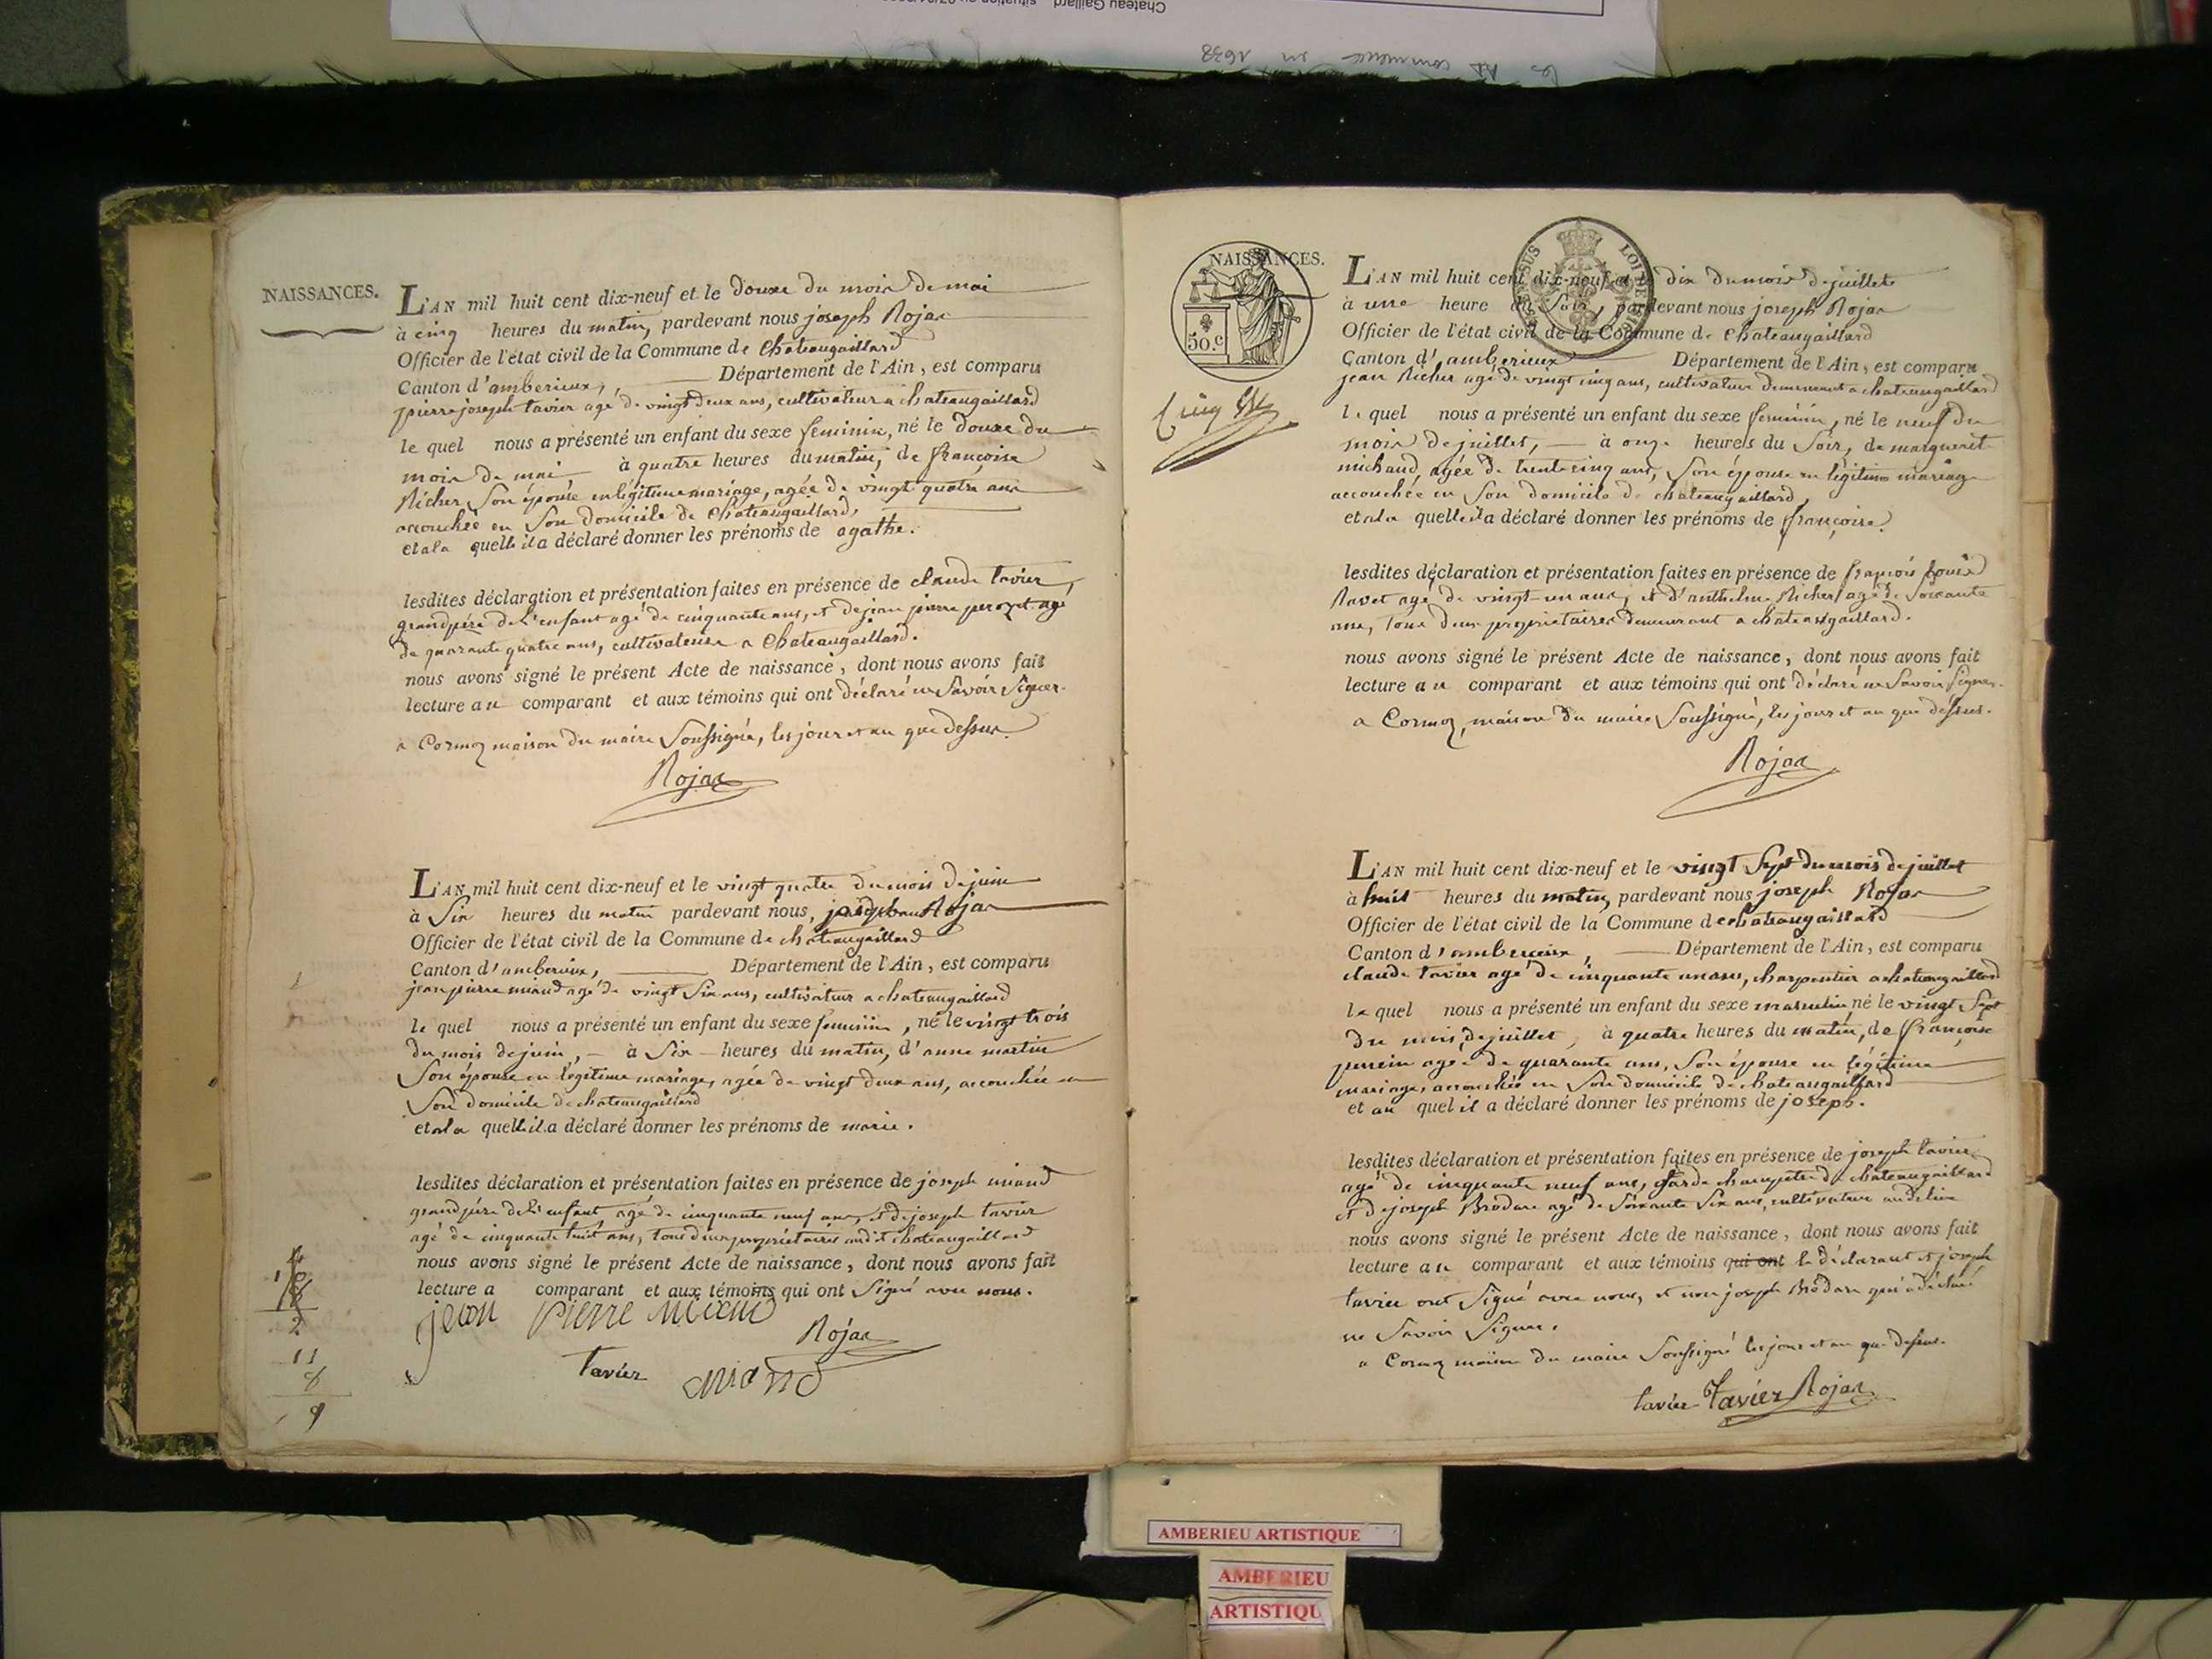 Chateau Gaillard
Les commence en 1638
NAISSANCES.
L'AN mil huit cent dix-neuf et le douze du mois de mai
à cinq heures du matin, pardevant nous joseph Rojas
Officier de l'état civil de la Commune de chateaugaillard
Canton d'amberieux, Département de l'Ain, est comparu
pierre joseph tavier agé de vingt deux ans, cultivateur a chateaugaillard
le quel nous a présenté un enfant du sexe feminin, né le douze du
mois de mai à quatre heures du matin, de françoise
Richer son épouse en légitime mariage, agée de vingt quatre ans
accouchée en son domicile de chateaugaillard,
et a la quelle il a déclaré donner les prénoms de agathe.
lesdites déclaration et présentation faites en présence de claude tavier,
grandpère de l'enfant agé de cinquante ans, et de jean pierre perozet agé
de quarante quatre ans, cultivateurs a chateaugaillard.
nous avons signé le présent Acte de naissance, dont nous avons fait
lecture au comparant et aux témoins qui ont déclaré ne savoir signer.
a Cormoz maison du maire soussigné, les jour et an que dessus.
Rojas
L'AN mil huit cent dix-neuf et le vingt quatre du mois de juin
à six heures du matin pardevant nous, joseph Rojas
Officier de l'état civil de la Commune de chateaugaillard
Canton d'amberieux, Département de l'Ain, est comparu
jean pierre miand agé de vingt six ans, cultivateur a chateaugaillard
le quel nous a présenté un enfant du sexe feminin, né le vingt trois
du mois de juin, à six heures du matin, d'anne martin
son épouse en légitime mariage, agée de vingt deux ans, accouchée en
son domicile de chateaugaillard
et a la quelle il a déclaré donner les prénoms de marie.
lesdites déclaration et présentation faites en présence de joseph miand
grandpére de l'enfant agé de cinquante neuf ans, et de joseph tavier
agé de cinquante huit ans, tous deux propriétaires audit chateaugaillard
nous avons signé le présent Acte de naissance, dont nous avons fait
lecture a comparant et aux témoins qui ont signé avec nous.
jean pierre miand
Rojas
tavier miand
2
11
9
NAISSANCES.
50.c
L'AN mil huit cent dix-neuf et le dix du mois de juillet
à une heure du soir, pardevant nous joseph Rojas
Officier de l'état civil de la Commune de chateaugaillard
Canton d'amberieux Département de l'Ain, est comparu
jean Richer agé de vingt cinq ans, cultivateur demeurant a chateaugaillard
le quel nous a présenté un enfant du sexe feminin, né le neuf du
mois de juillet, à onze heures du soir, de marguerit
michaud, agée de trente cinq ans, son épouse en légitime mariage
accouchée en son domicile de chateaugaillard,
et a la quelle il a déclaré donner les prénoms de françoise.
lesdites déclaration et présentation faites en présence de françois Louis
Ravet agé de vingt-un ans, et d'anthelme Richer agé de soixante
ans, tous deux propriétaires demeurant a chateaugaillard.
nous avons signé le présent Acte de naissance, dont nous avons fait
lecture au comparant et aux témoins qui ont déclaré ne savoir signer.
a Cormoz, maison du maire soussigné, les jour et an que dessus.
Rojas
L'AN mil huit cent dix-neuf et le vingt sept du mois de juillet
à huit heures du matin, pardevant nous joseph Rojas
Officier de l'état civil de la Commune de chateaugaillard
Canton d'amberieux, Département de l'Ain, est comparu
claude tavier agé de cinquante un ans, charpentier a chateaugaillard
le quel nous a présenté un enfant du sexe masculin, né le vingt sept
du mois de juillet, à quatre heures du matin, de françoise
perrin agée de quarante ans, son épouse en légitime
mariage, accouchée en son domicile de chateaugaillard
et au quel il a déclaré donner les prénoms de joseph.
lesdites déclaration et présentation faites en présence de joseph tavier
agé de cinquante neuf ans, garde champêtre de chateaugaillard
et de joseph Brodare agé de soixante six ans, cultivateur audit lieu
nous avons signé le présent Acte de naissance, dont nous avons fait
lecture au comparant et aux témoins qui ont le déclarant et joseph
tavier ont signé avec nous, et non joseph Brodare qui a déclaré
ne savoir signer.
a Cormoz maison du maire soussigné les jour et an que dessus.
tavier Tavier Rojas
AMBERIEU ARTISTIQUE
AMBERIEU
ARTISTIQU